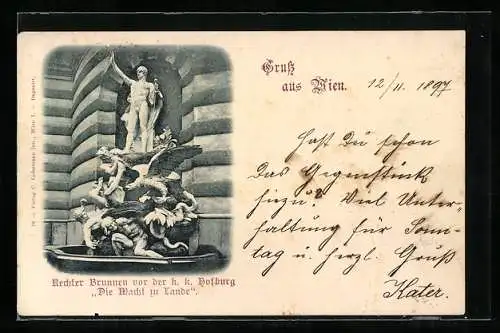 Gruß
aus Wien.
12/11. 1897
Hast Du schon
das Gegenstück
hiezu? Viel Unter=
haltung für Sonn=
tag u. herzl. Gruß
Kater.
Rechter Brunnen vor der k. k. Hofburg
„Die Macht zu Lande“.
Verlag C. Ledermann jun., Wien I. — Dep